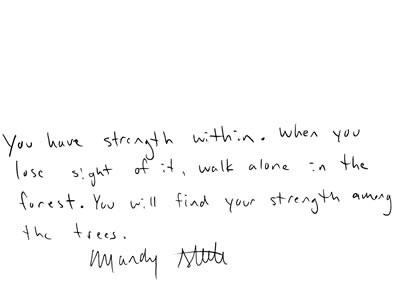 You have strength within. When you
lose sight of it, walk alone in the
forest. You will find your strength among
the trees.
Mandy